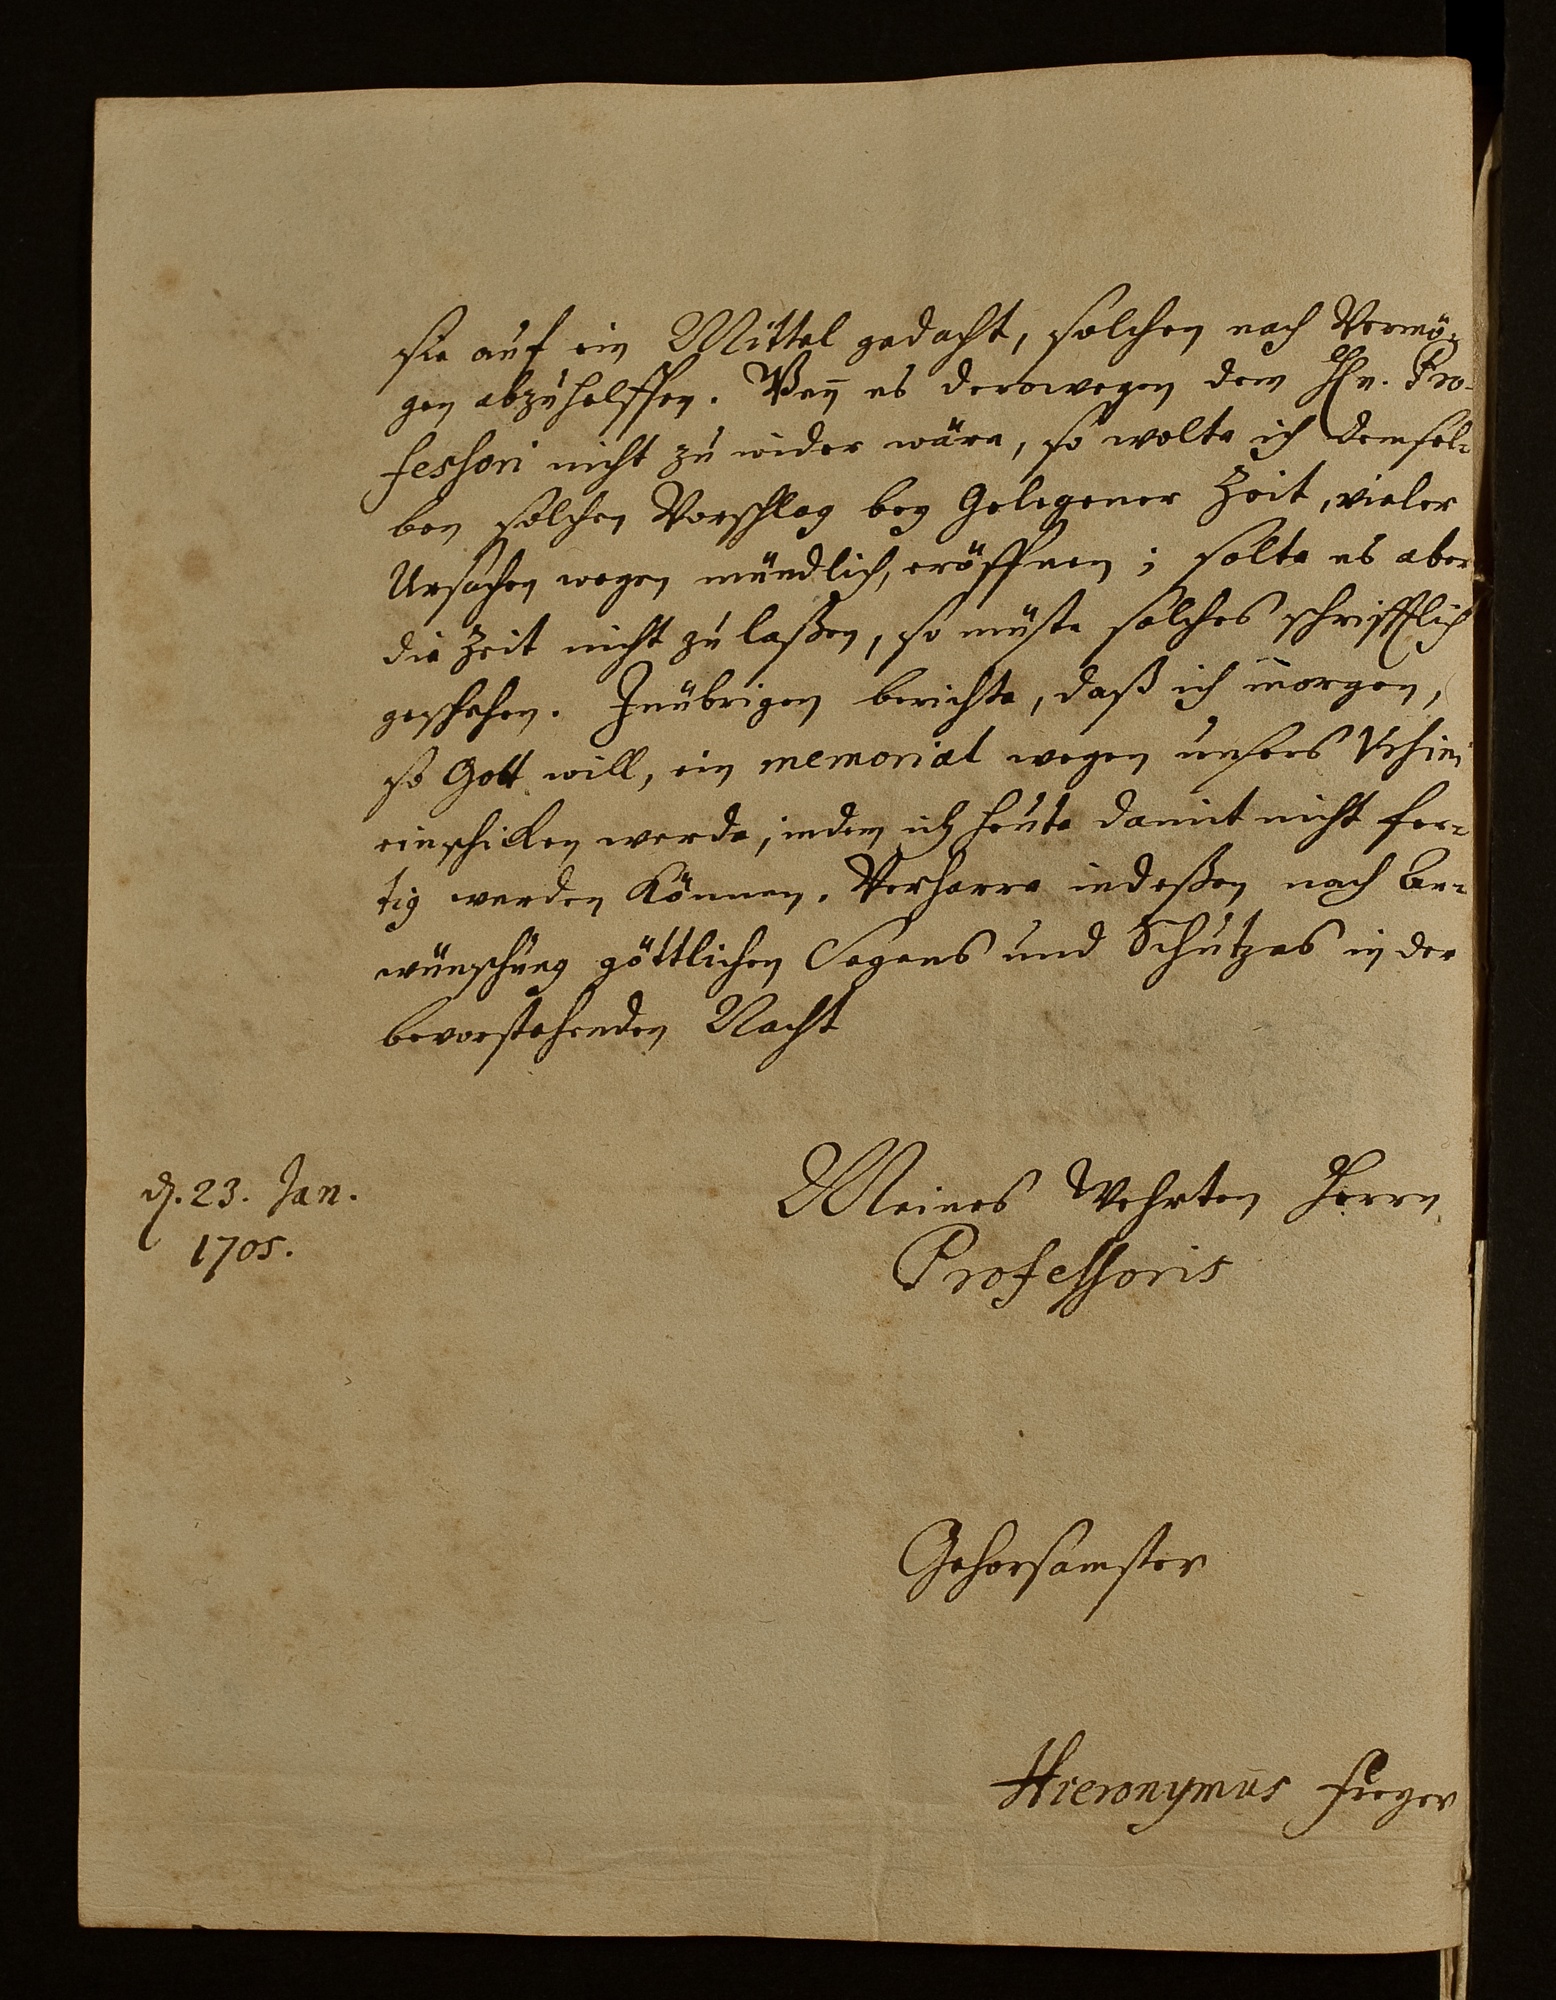 sie auf ein Mittel gedacht, solchen nach Vermö-
gen abzuhelffen. Weñ es derowegen dem Hn. Pro-
fessori nicht zu wider wäre, so wolte ich demsel-
ben solchen Vorschlag bey Gelegener Zeit, vieler
Ursachen wegen mündlich, eröffnen; solte es aber
die Zeit nicht zu laßen, so müste solches schrifftlich
geschehen. Inübrigen berichte, daß ich morgen,
so Gott will, ein memorial wegen unsers Vrsini
einschicken werde, indem ich heute damit nicht fer-
tig werden können. Verharre indeßen nach An-
wünschung göttlichen Segens und Schutzes in der
bevorstehenden Nacht
Meines Wehrten Herrn
Professoris
d. 23. Jan.
1705.
Gehorsamster
Hieronymus Freyer